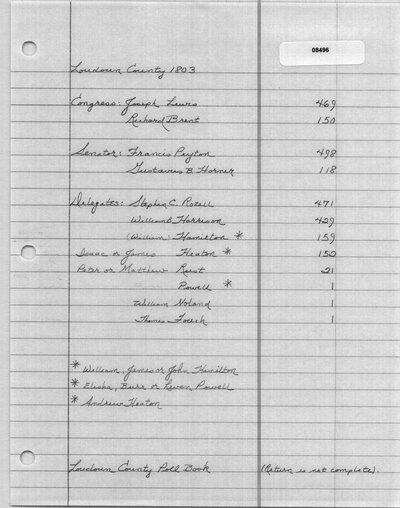 08496
Loudoun County 1803
Congress: Joseph Lewis 469
Richard Brent 150
Senator: Francis Peyton 498
Gustavus B. Horner 118
Delegates: Stephen C. Rozell 471
William B. Harrison 429
(William) Hamilton * 159
Isaac or James Heaton * 150
Peter or Matthew Rust 21
Powell * 1
William Noland 1
Thomas 1
* William, James or John Hamilton
* Elisha, Burr or Leven Powell
* Andrew Heaton
Loudoun County Poll Book (Return is not complete).